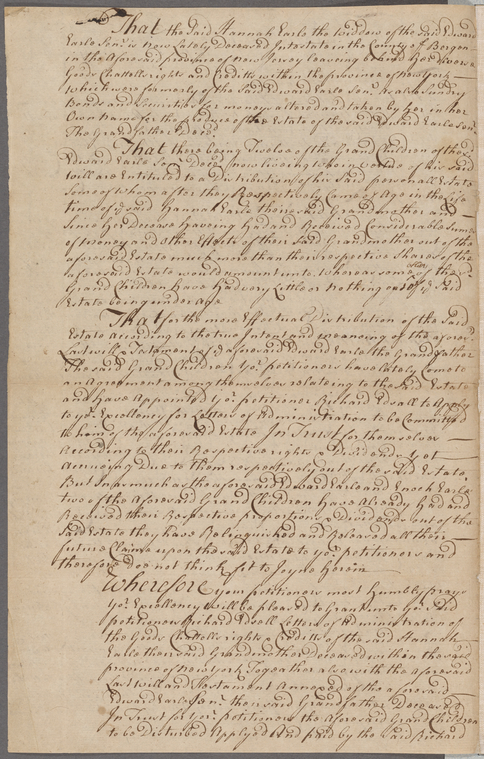 That the said Hannah Earle the widdow of the said Edward
Earle Senr. is now Lately Deceased Intestate in the County of Bergen
in the aforesaid province of New Jersey leaving behind her divers
Goods Chattells rights and Creditts within the province of New York
which were formerly of the said Edward Earle Senr. as also Sundry
Bonds and Securities for money altered and taken by her in her
Own Name for the produce of the Estate of the said Edward Earle Senr.
The Grandfather Deced.
That there being Twelve of the Grand Children of the sd.
Edward Earle Senr. Deced. now living whom by of his said
Will are Entituled to a Distribution of his said personall Estate
Some of whom after they Respectively Came of Age in the life
time of ye said Hannah Earle their said Grandmother and
Since her Decease haveing Had and Received Considerable Summs
of Money and other Effects of their said Grandmother out of the
aforesaid Estate much more than their respective Shares of the
aforesaid Estate would amount unto. Whereas some other of the
Grand Children Have Had very Little or Nothing out of ye said
Estate being under age
That for the more Effectual Distribution of the said
Estate according to the true Intent and meaning of the aforesd.
Last will & Testament of ye aforesaid Edward Earle the Grandfather
The said Grand Children yor. petitioners have lately Come to
an Agreement among themselves relateing to the said Estate
and have Appointed yor. petitioner Richard Edsall to Apply
to yor. Excellency for Letters of Administration to be Committed
to him of the aforesaid Estate In Trust for themselves
According to their Respective rights & Dividends yet
accruing Due to them respectively out of the said Estate,
But Inasmuch as the aforesaid Edward Earle and Enoch Earle
two of the aforesaid Grand Children have Already Had and
Received their Respective proportions & Dividends out of the
said Estate they have Relinquished and Released all their
future Claime upon the said Estate to yor. petitioners and
therefore doe not think fit to Joyne herein
Wherefore your petitioners most Humbly prays
yor. Excellency will be pleased to Grant unto yor. said
petitioner Richard Edsall Letters of Administration of
the Goods Chattells rights & Creditts of the said Hannah
Earle their said Grandmother deceased within the said
province of New York Together also with the aforesaid
Last will and Testament Annexed of the aforesaid
Edward Earle Senr. their said Grandfather Deceased
In Trust for yor. Petitioners the aforesaid Grand Children
to be Disturbed Applyed And paid by the Said Richard